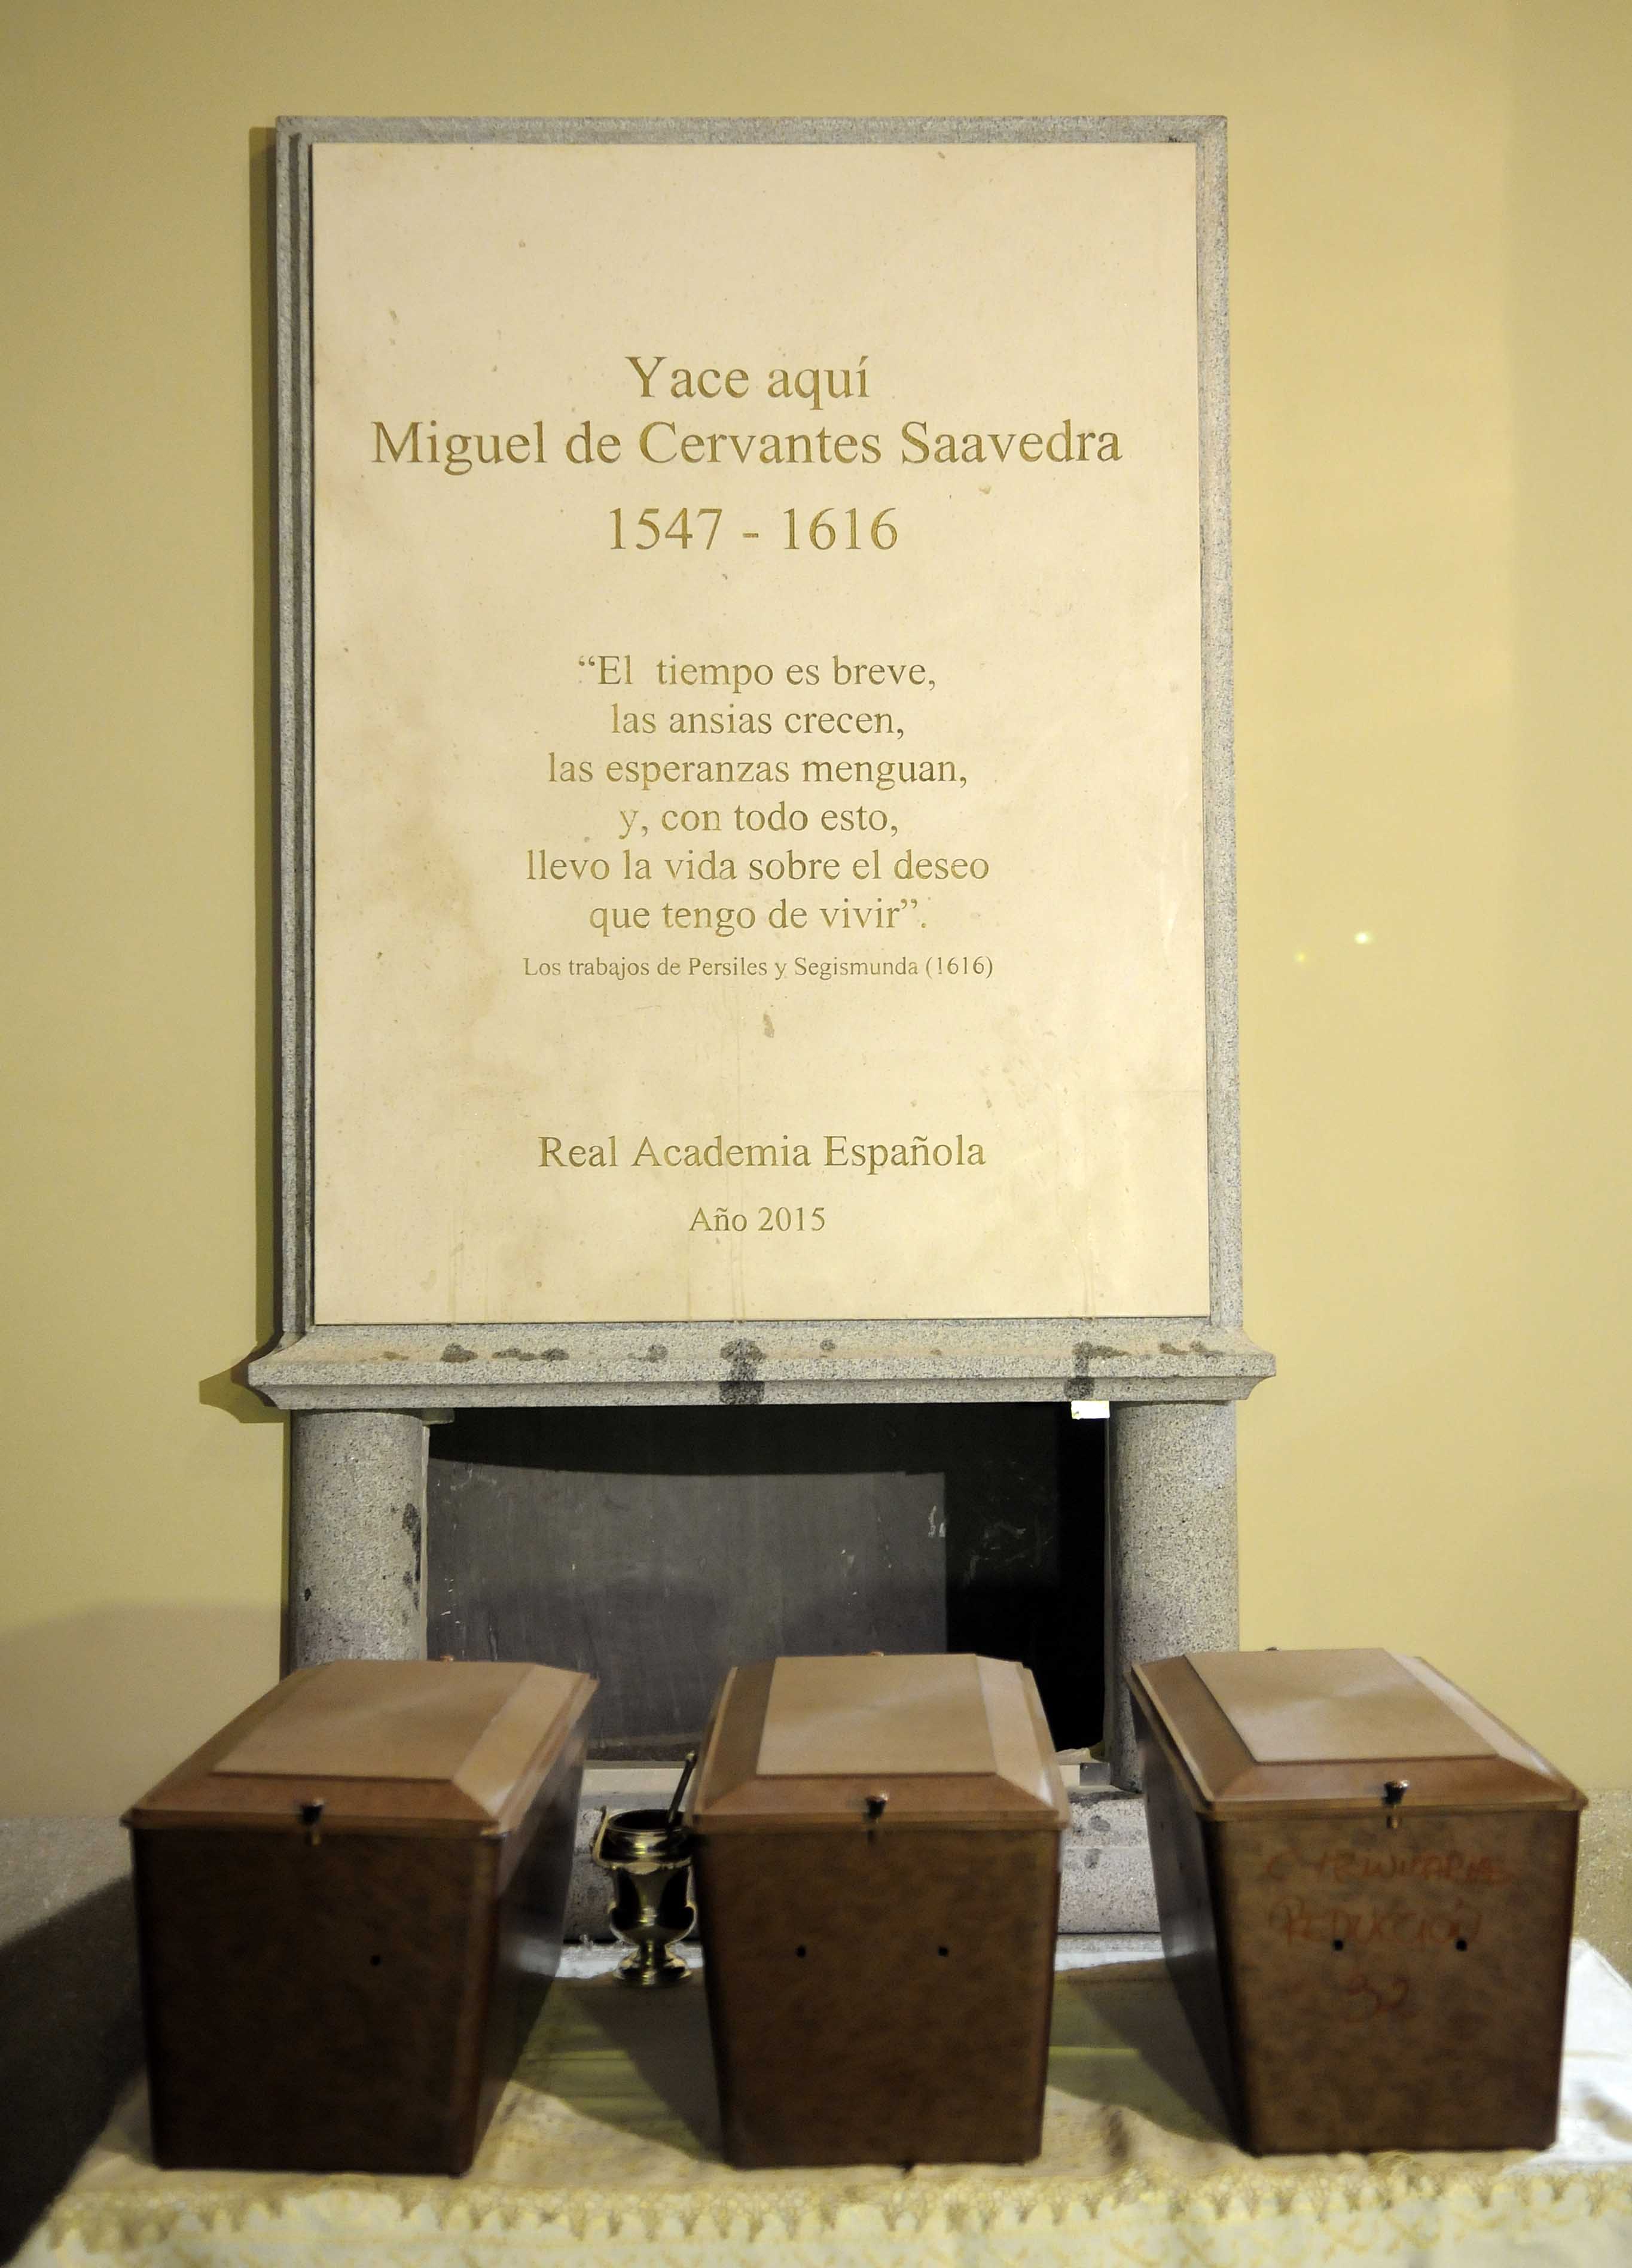 Yace aquí
Miguel de Cervantes Saavedra
1547 - 1616
“El tiempo es breve,
las ansias crecen,
las esperanzas menguan,
y, con todo esto,
llevo la vida sobre el deseo
que tengo de vivir”.
Los trabajos de Persiles y Segismunda (1616)
Real Academia Española
Año 2015
REDUCCIÓN
32